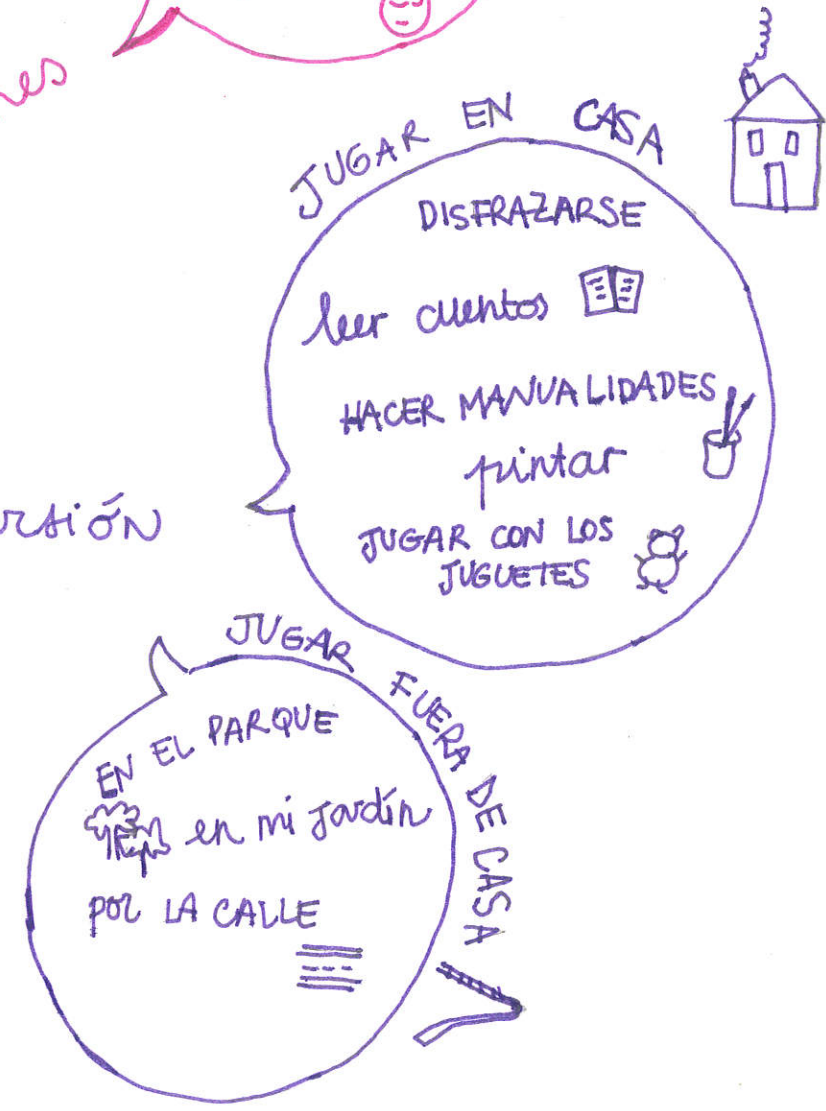 JUGAR EN CASA
DISFRAZARSE
leer cuentos
HACER MANUALIDADES
pintar
JUGAR CON LOS
JUGUETES
JUGAR FUERA DE CASA
EN EL PARQUE
en mi jardín
POR LA CALLE